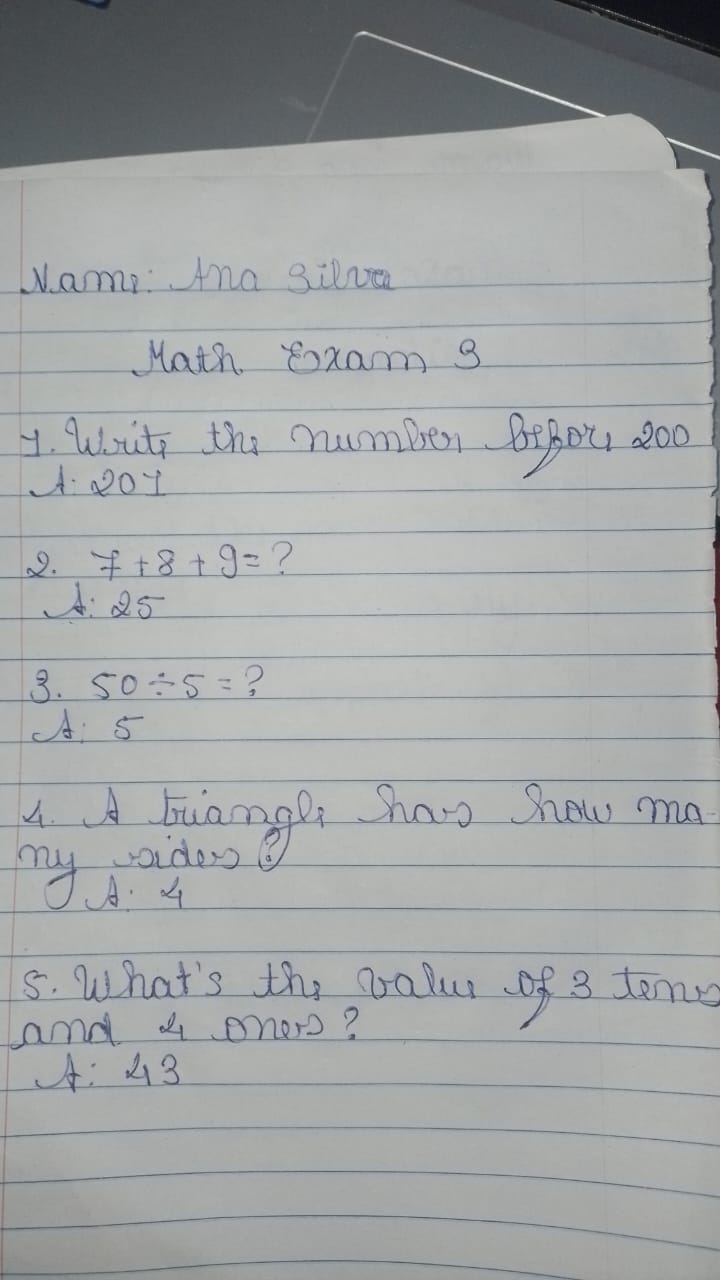 Name: Ana Silva
Math Exam 3
1. Write the number before 200
A: 201
2. 7+8+9=?
A: 25
3. 50÷5=?
A: 5
4. A triangle has how ma-
ny sides?
A: 4
5. What's the value of 3 tens
and 4 ones?
A: 43